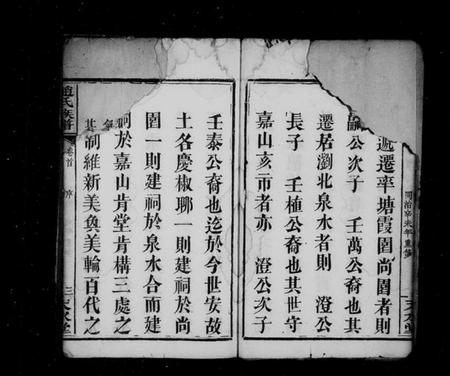 遷率塘霞園尚園者則
公次子 壬萬公裔也其
遷居瀏北泉水者則 澄公
長子 壬植公裔也其世守
嘉山亥市者亦 澄公次子
壬泰公裔也迄於今世安故
土各慶椒聊一則建祠於尚
園一則建祠於泉水合而建
祠於嘉山肯堂肯構三處之
其制維新美奐美輪百代之
趙氏族譜
卷首
序